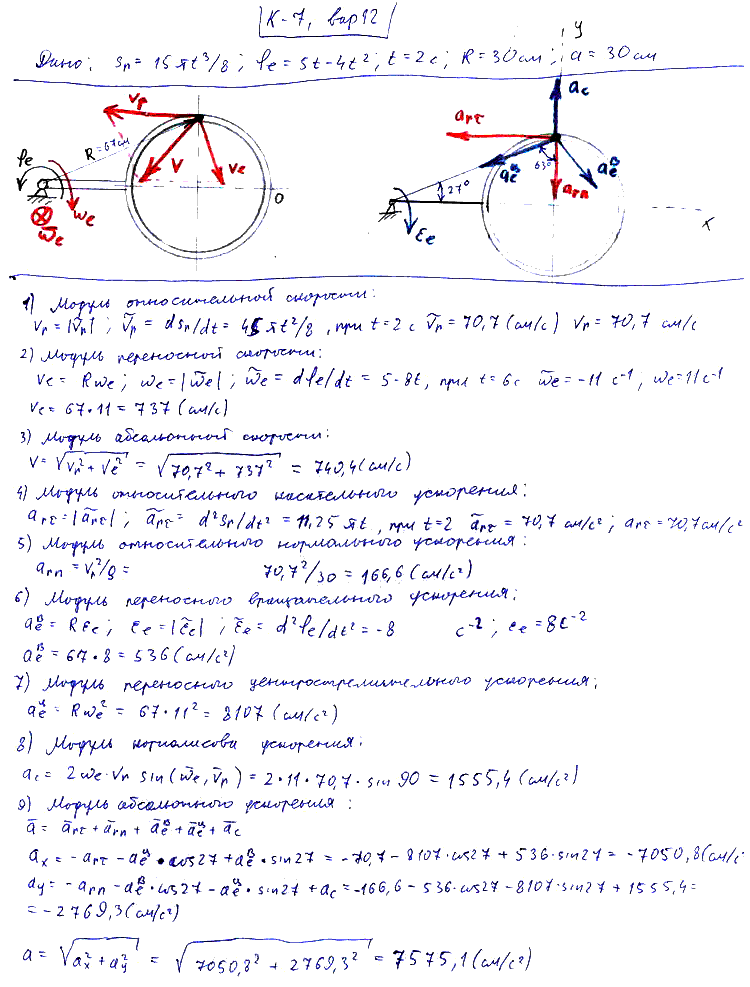 К-7, вар 12
Дано: Sr = 15πt³/8; φe = 5t-4t²; t = 2c; R = 30 см; a = 30 см
y
Vr
R=67см
φe
V
Ve
ωe
ω̄e
O
ac
arτ
63°
aeᴮ
aeц
arn
27°
εe
x
1) Модуль относительной скорости:
Vr = |Ṽr|; Ṽr = dSr/dt = 45πt²/8, при t = 2 c Ṽr = 70,7 (см/c) Vr = 70,7 см/c
2) Модуль переносной скорости:
Ve = Rωe; ωe = |ω̃e|; ω̃e = dφe/dt = 5-8t, при t = 6c ω̃e = -11 c⁻¹, ωe = 11 c⁻¹
Ve = 67·11 = 737 (см/c)
3) Модуль абсолютной скорости:
V = √(Vr² + Ve²) = √(70,7² + 737²) = 740,4 (см/c)
4) Модуль относительного касательного ускорения:
arτ = |ãrτ|; ãrτ = d²Sr/dt² = 11,25πt, при t = 2 ãrτ = 70,7 см/c²; arτ = 70,7 см/c²
5) Модуль относительного нормального ускорения:
arn = Vr²/ρ = 70,7²/30 = 166,6 (см/c²)
6) Модуль переносного вращательного ускорения:
aeᴮ = Rεe; εe = |ε̃e|; ε̃e = d²φe/dt² = -8 c⁻²; εe = 8c⁻²
aeᴮ = 67·8 = 536 (см/c²)
7) Модуль переносного центростремительного ускорения:
aeц = Rωe² = 67·11² = 8107 (см/c²)
8) Модуль кориолисова ускорения:
ac = 2ωe·Vr sin(ω̄e, V̄r) = 2·11·70,7·sin 90 = 1555,4 (см/c²)
9) Модуль абсолютного ускорения:
ā = ārτ + ārn + āeᴮ + āeц + āc
ax = -arτ - aeц·cos27 + aeᴮ·sin27 = -70,7 - 8107·cos27 + 536·sin27 = -7050,8 (см/c
ay = -arn - aeᴮ·cos27 - aeц·sin27 + ac = -166,6 - 536·cos27 - 8107·sin27 + 1555,4 =
= -2769,3 (см/c²)
a = √(ax² + ay²) = √(7050,8² + 2769,3²) = 7575,1 (см/c²)